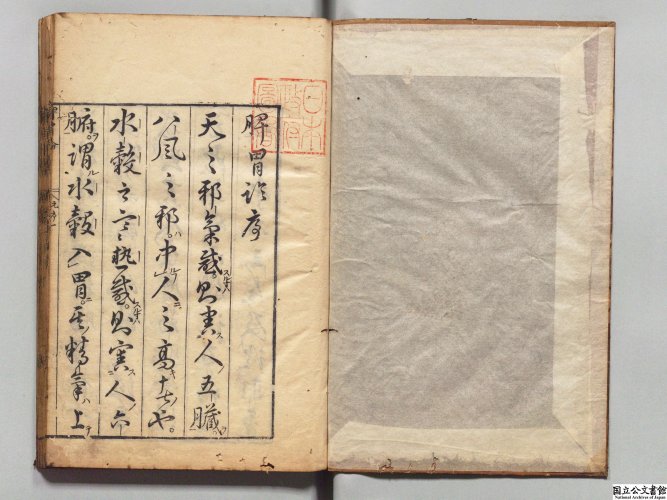 脾胃論序
天之邪氣感則害人五臟
八風之邪中人之高者也
水穀之寒熱感則害人六
腑謂水穀入胃其精氣上
日本
政府
圖書
国立公文書館
National Archives of Japan